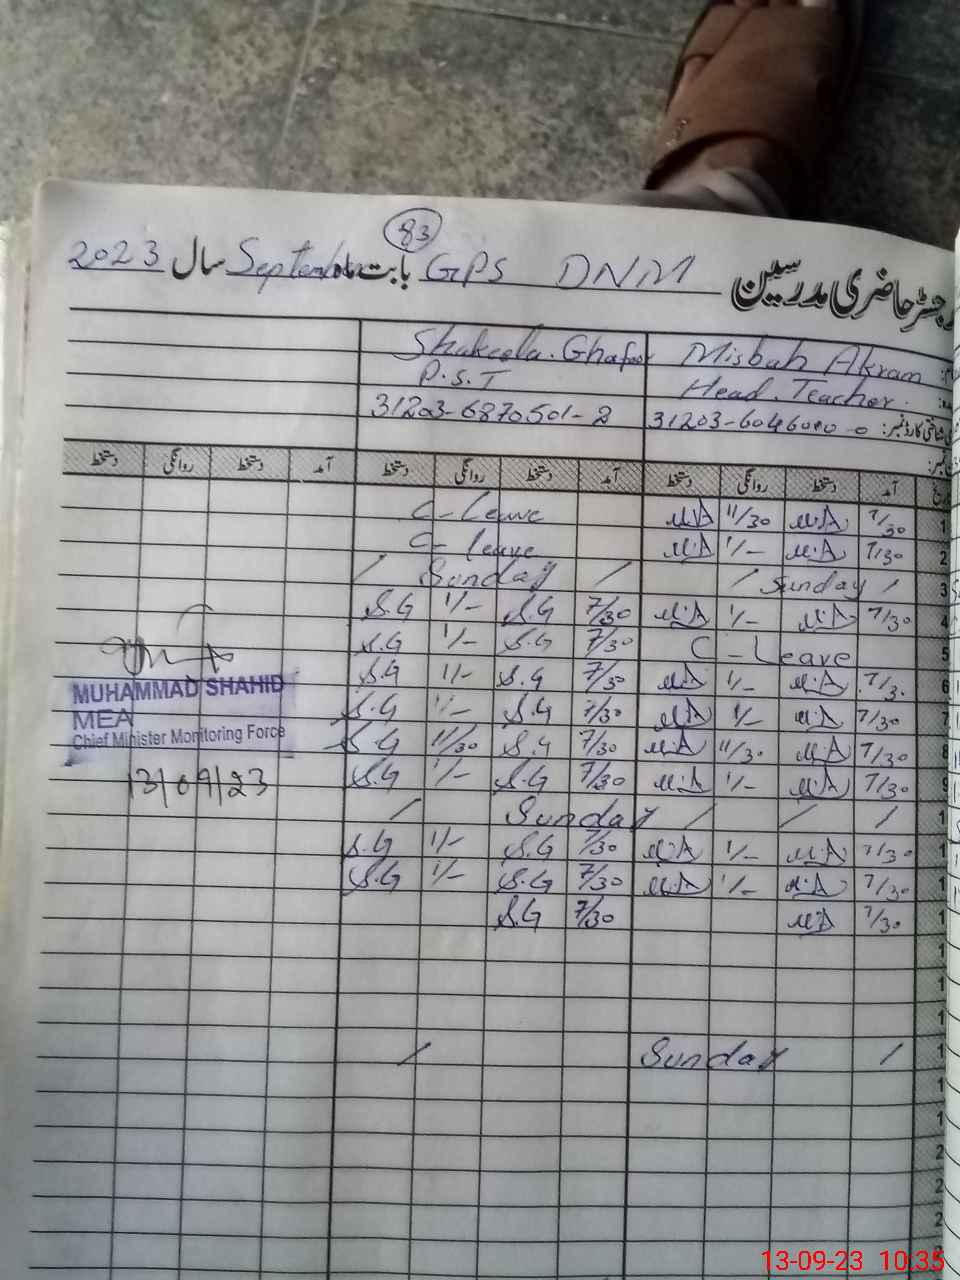 83
رجسٹر حاضری مدرسین GPS DNM بابت ماہ September سال 2023
Misbah Akram Shakeela. Ghafoor
Head. Teacher. P.S.T
شناختی کارڈ نمبر: 31203-6870501-2
آمد دستخط روانگی دستخط آمد دستخط روانگی دستخط آمد دستخط روانگی دستخط
1 7/30 M.A 11/30 M.A C-Leave
2 7/30 M.A 1/- M.A C-leave
3 / Sunday / / Sunday /
4 7/30 M.A 1/- M.A 7/30 S.G 1/- S.G
5 C-Leave 7/30 S.G 1/- S.G
6 7/3. M.A 1/- M.A 7/30 S.G 1/- S.G
7 7/30 M.A 1/- M.A 7/30 S.G 1/- S.G
8 7/30 M.A 11/30 M.A 7/30 S.G 11/30 S.G
9 7/30 M.A 1/- M.A 7/30 S.G 1/- S.G
1 / / / Sunday /
1 7/30 M.A 1/- M.A 7/30 S.G 1/- S.G
1 7/30 M.A 1/- M.A 7/30 S.G 1/- S.G
1 7/30 M.A 7/30 S.G
1
1
1
1 / Sunday /
1
1
2
2
2
MUHAMMAD SHAHID
MEA
Chief Minister Monitoring Force
13/09/23
13-09-23 10:35